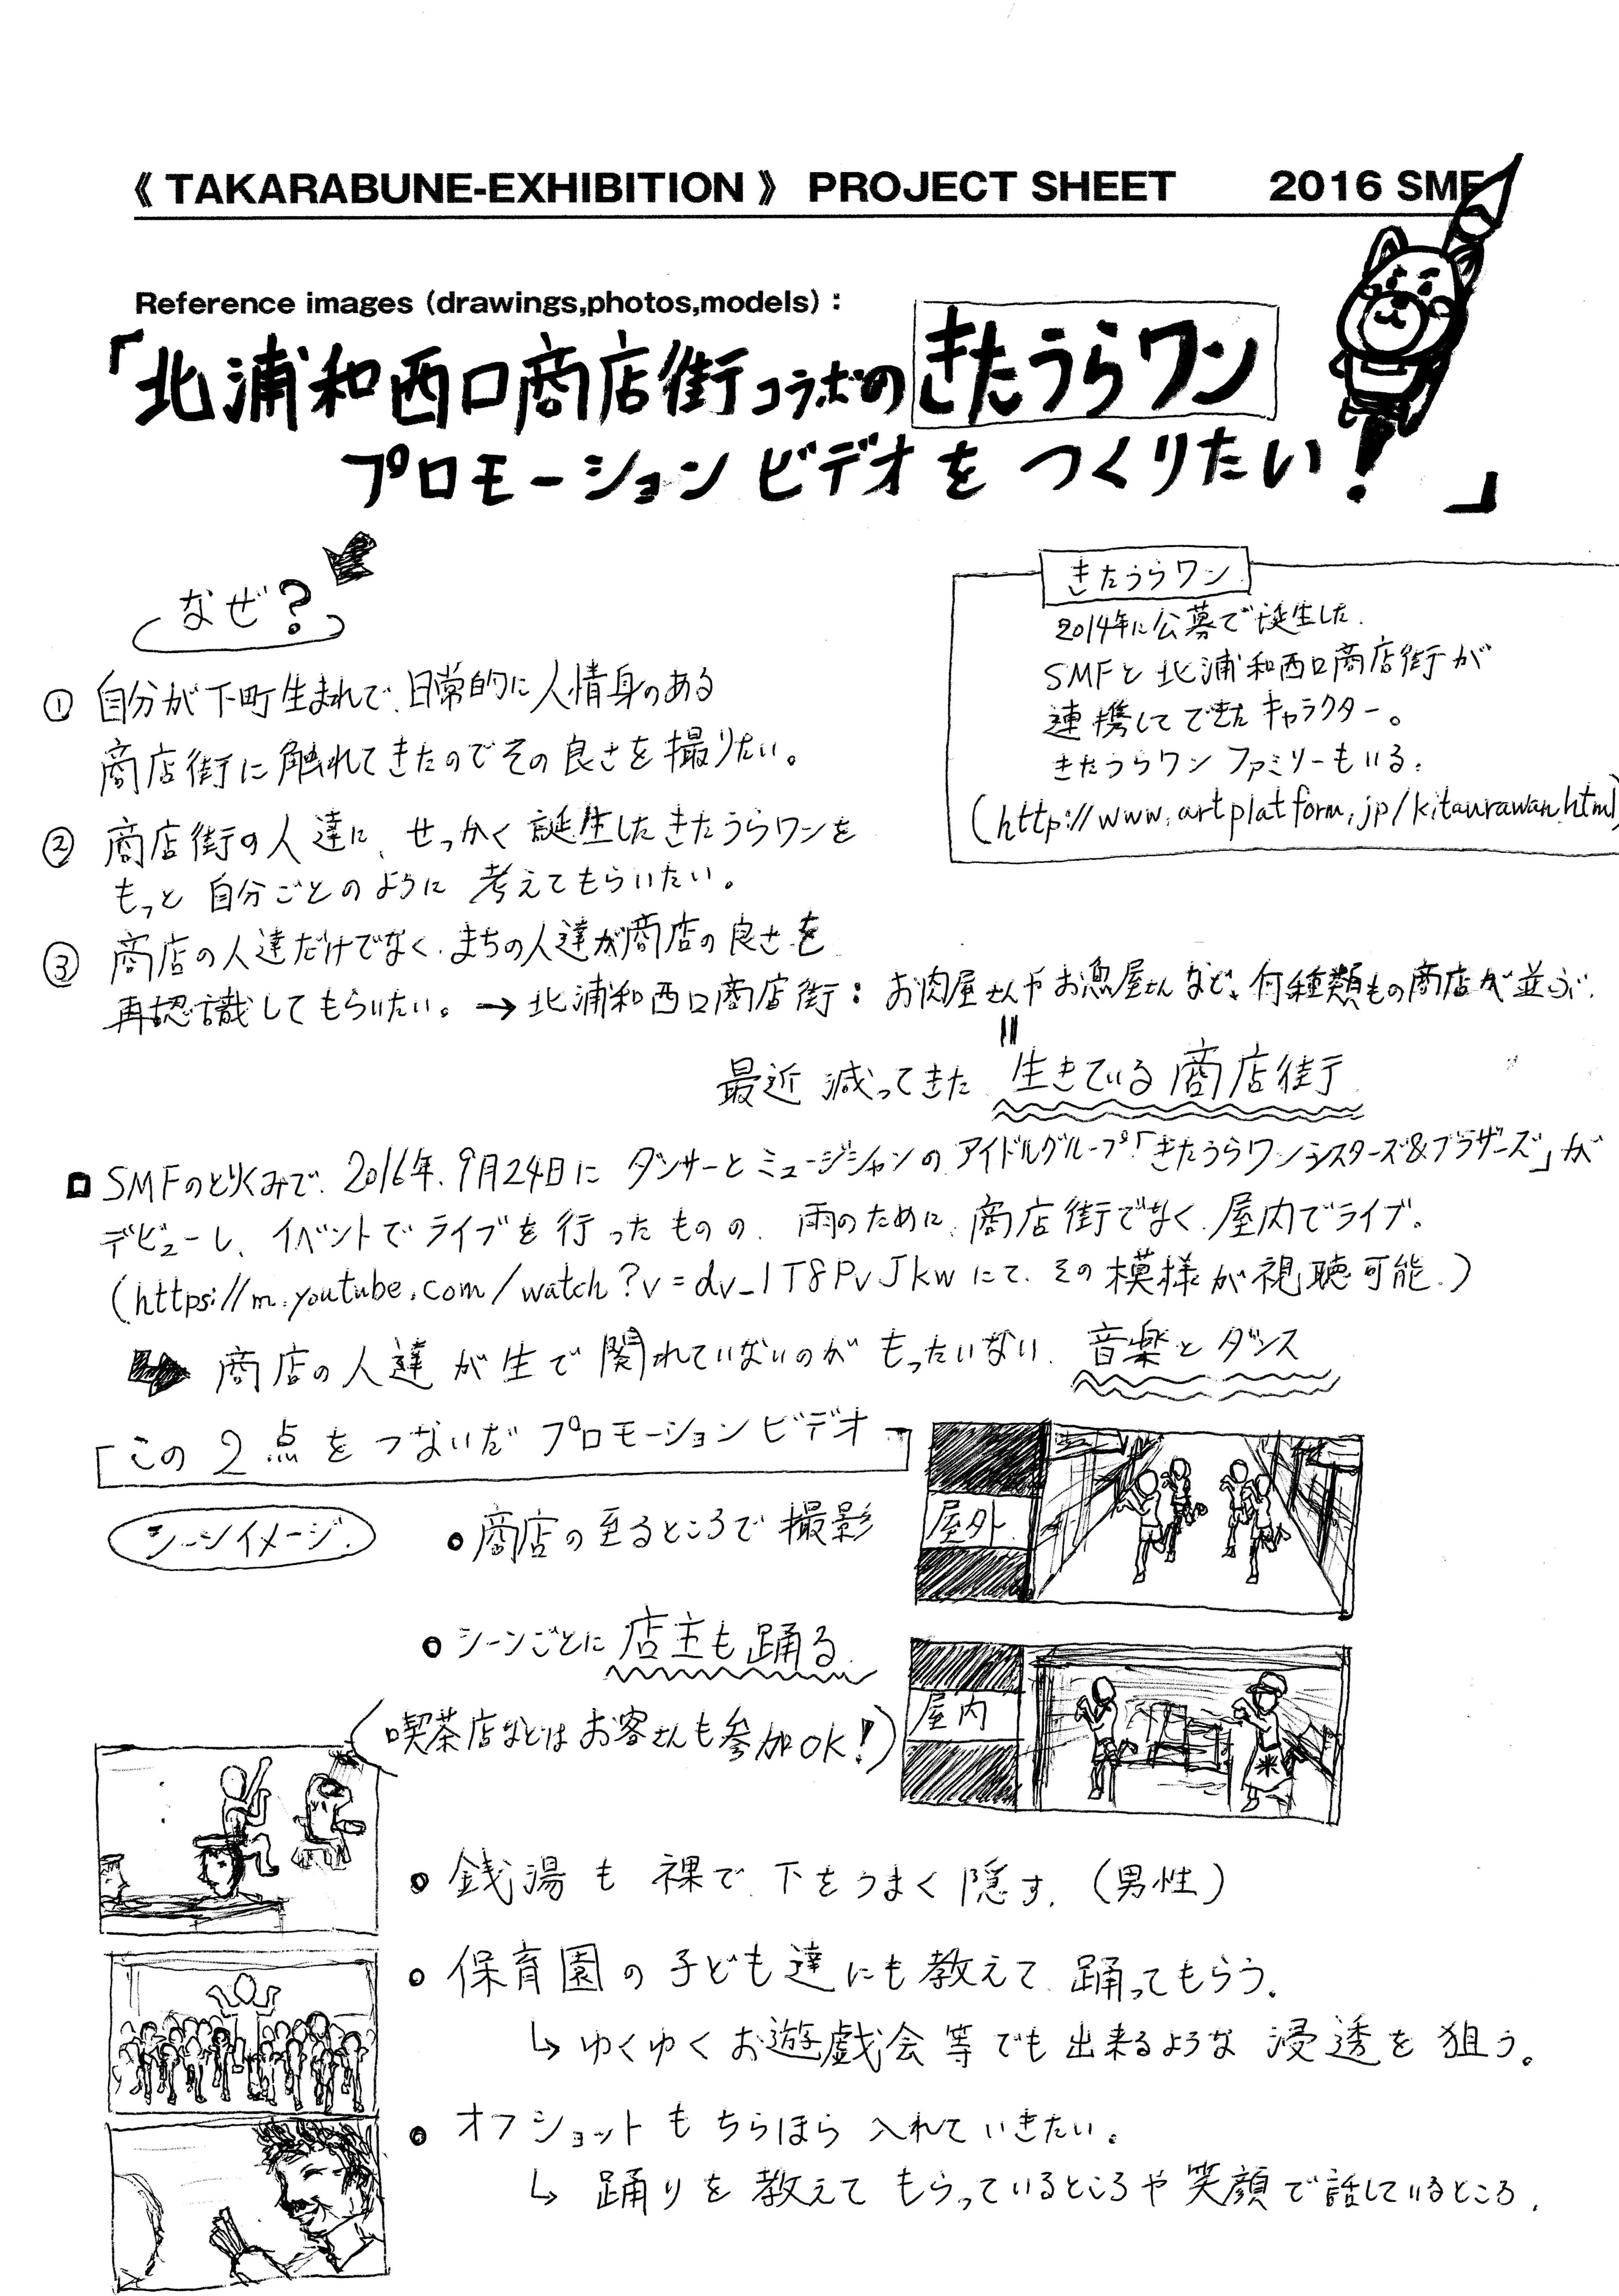 《 TAKARABUNE-EXHIBITION 》 PROJECT SHEET 2016 SMF
Reference images (drawings,photos,models) :
「北浦和西口商店街コラボのきたうらワン
プロモーションビデオをつくりたい！」
なぜ？
① 自分が下町生まれで、日常的に人情身のある
商店街に触れてきたのでその良さを撮りたい。
② 商店街の人達に、せっかく誕生したきたうらワンを
もっと自分ごとのように考えてもらいたい。
③ 商店の人達だけでなく、まちの人達が商店の良さを
再認識してもらいたい。→ 北浦和西口商店街：お肉屋さんやお魚屋さんなど、何種類もの商店が並ぶ。
最近減ってきた生きている商店街
きたうらワン
2014年に公募で誕生した。
SMFと北浦和西口商店街が
連携してできたキャラクター。
きたうらワンファミリーもいる。
(http://www.artplatform.jp/kitaurawan.html)
SMFのとりくみで、2016年、9月24日にダンサーとミュージシャンのアイドルグループ「きたうらワンシスターズ&ブラザーズ」が
デビューし、イベントでライブを行ったものの、雨のために、商店街でなく、屋内でライブ。
(https://m.youtube.com/watch?v=dv_1T8PvJkwにて、その模様が視聴可能。)
商店の人達が生で関れていないのがもったいない、音楽とダンス
「この2点をつないだプロモーションビデオ」
シーンイメージ
・商店の至るところで撮影
屋外
・シーンごとに店主も踊る
(喫茶店などはお客さんも参加OK！)
屋内
米
・銭湯も裸で、下をうまく隠す。(男性)
・保育園の子ども達にも教えて、踊ってもらう。
↳ ゆくゆくお遊戯会等でも出来るような浸透を狙う。
・オフショットもちらほら入れていきたい。
↳ 踊りを教えてもらっているところや笑顔で話しているところ。